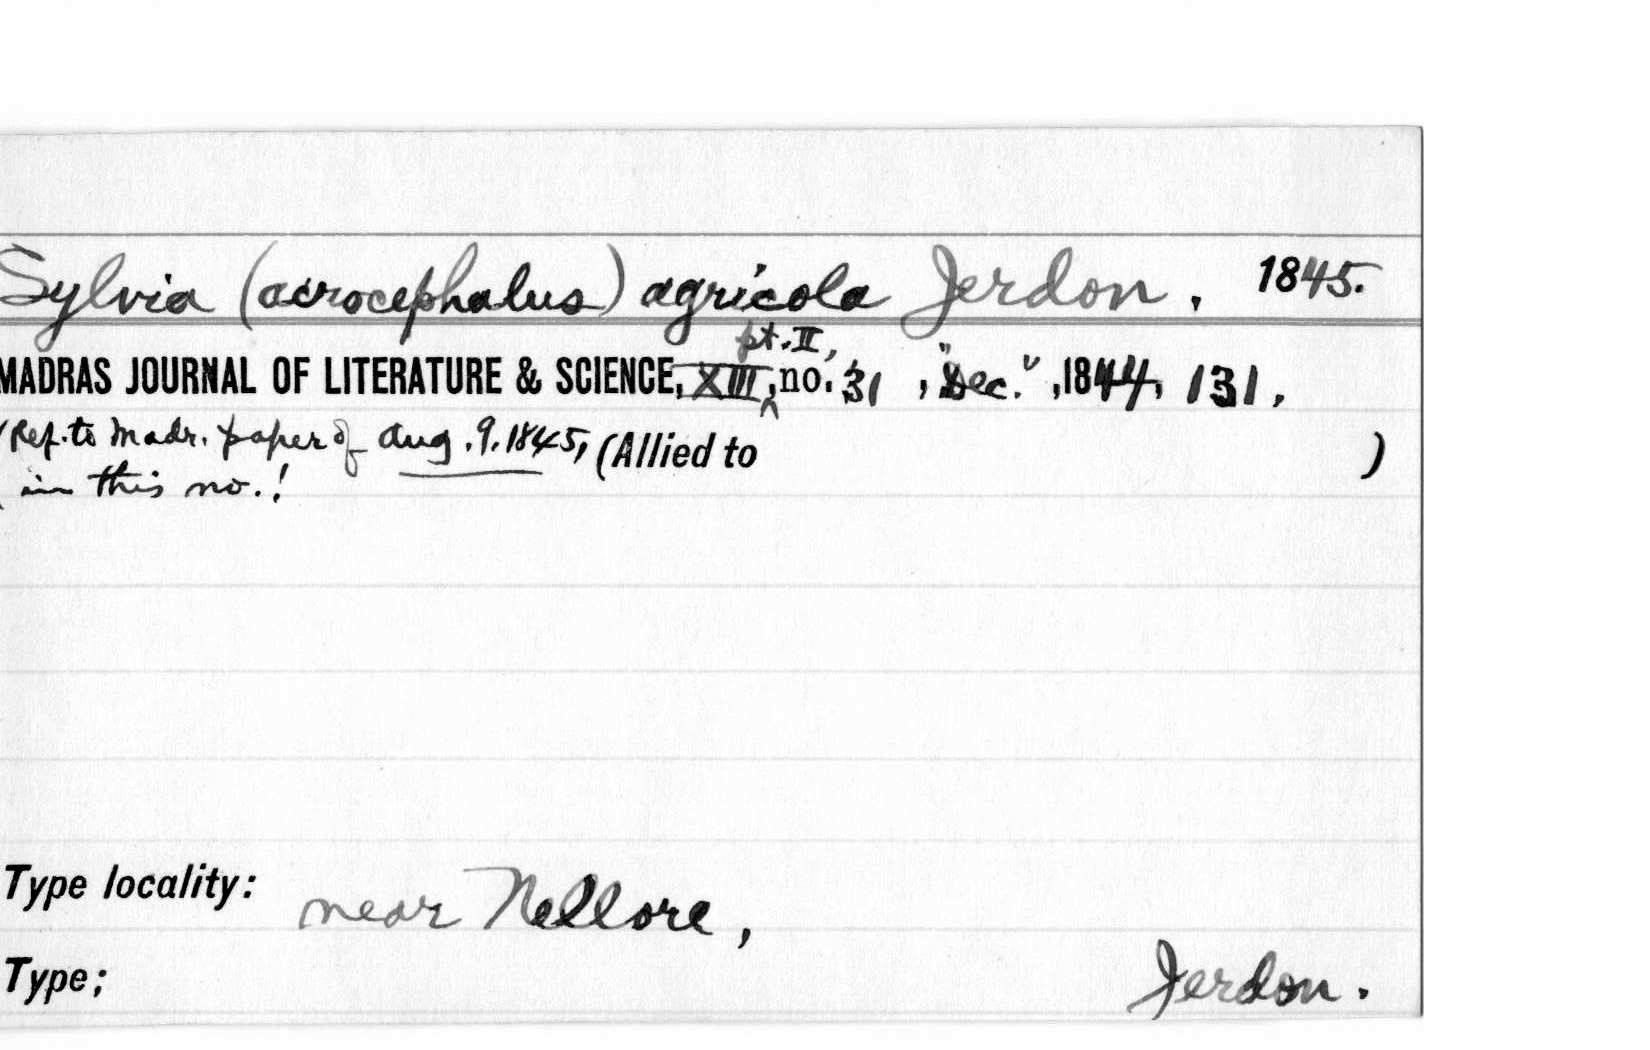 Sylvia (acrocephalus) agricola Jerdon, 1845.
pt. II,
MADRAS JOURNAL OF LITERATURE & SCIENCE, XIII, no. 31 , "Dec." ,1844, 131,
(Ref. to Madr. paper of Aug. 9. 1845, (Allied to )
in this no.!
Type locality: near Nellore,
Type;
Jerdon.